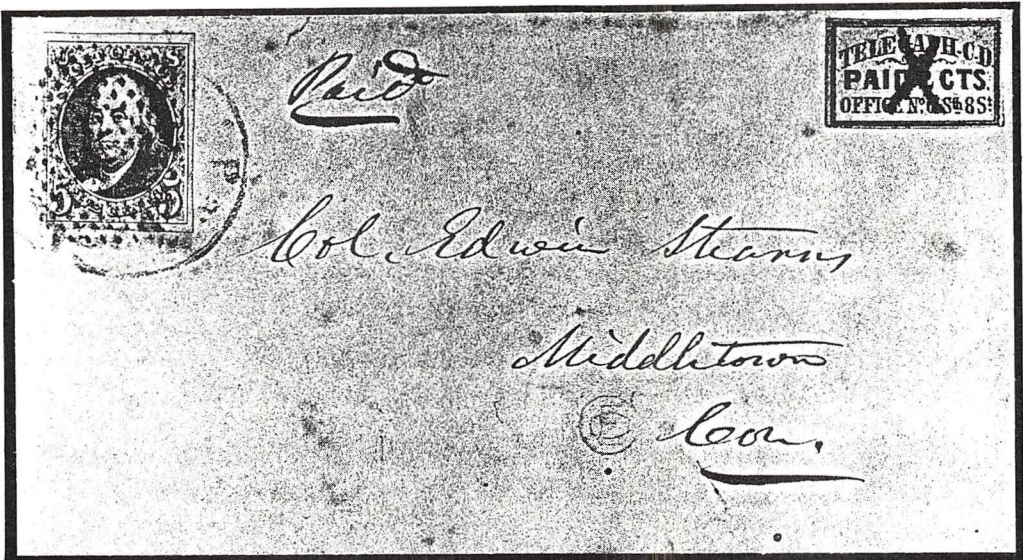 Paid
TELEGRAPH-C.D
PAID CTS.
OFFICE Nº 6 Sth 8 St
Col. Edwin Stearns
Middletown
Con.
5 5